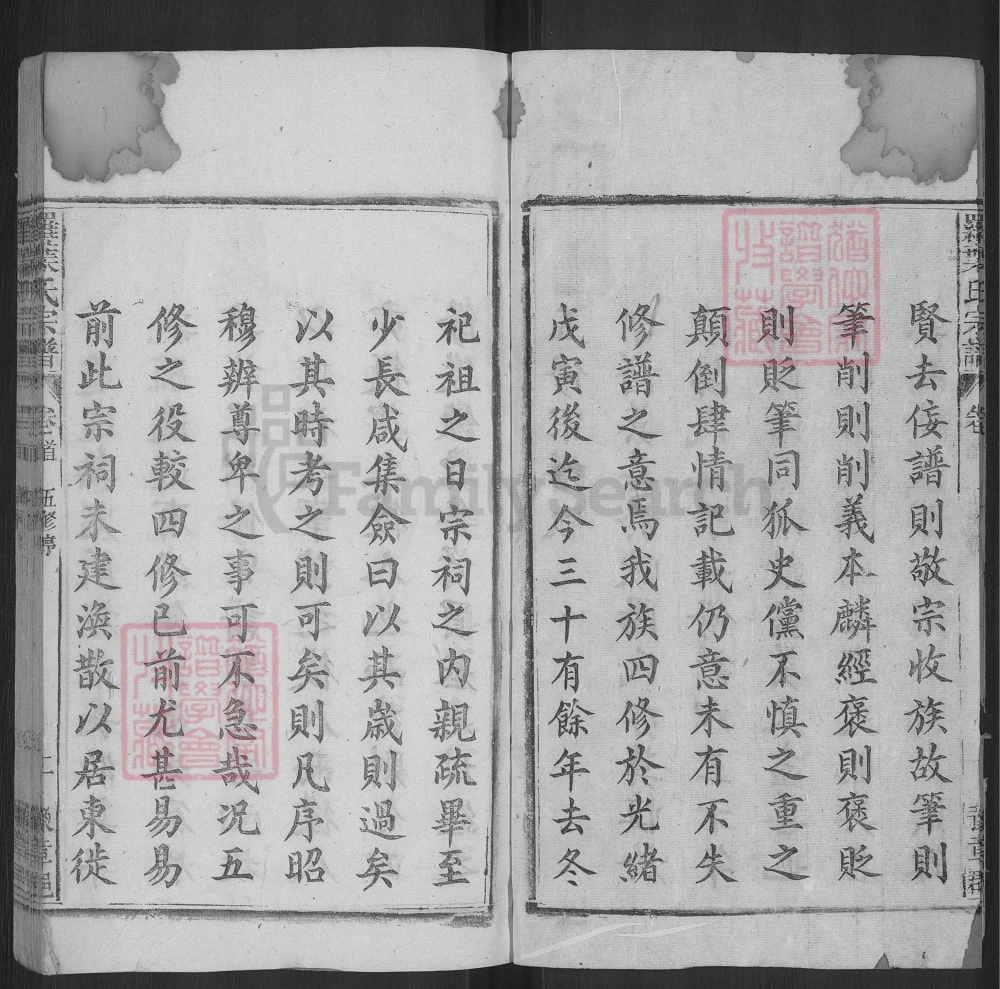 賢去佞譜則敬宗收族故筆則
筆削則削義本麟經褒則褒貶
則貶筆同狐史儻不慎之重之
顛倒肆情記載仍意未有不失
修譜之意焉我族四修於光緒
戊寅後迄今三十有餘年去冬
祀祖之日宗祠之内親疏畢至
少長咸集僉曰以其歲則過矣
以其時考之則可矣則凡序昭
穆辨尊卑之事可不急哉况五
修之役較四修已前尤甚易易
前此宗祠未建渙散以居東徙
羅葉氏宗譜
卷首
五修序
二
豫章郡
FamilySearch